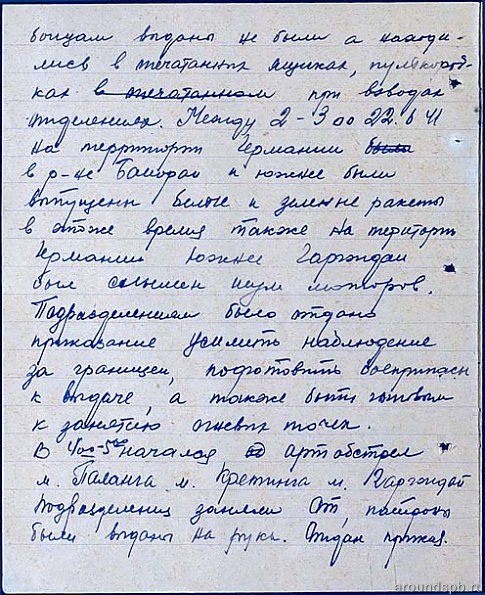 бойцам выданы не были а находи-
лись в печатанных ящиках, пулькороб-
ках в печатанном при взводах
отделениях. Между 2-3 00 22.6 41
на территори Германии было
в р-не Байораи и южнее были
выпущены белые и зеленые ракеты
в этоже время также на територи
Германии южнее Гаргждаи
был слышен шум моторов.
Подразделениям было отдано
приказание усилить наблюдение
за границей, подготовить боеприпасы
к выдаче, а также быть готовым
к занятию огневых точек.
В 4 00-5 00 начался артобстрел
м. Паланга м. Кретинга м. Гаргждай
подразделения заняли ОТ, патроны
были выданы на руки. Отдан приказ.
aroundspb.ru